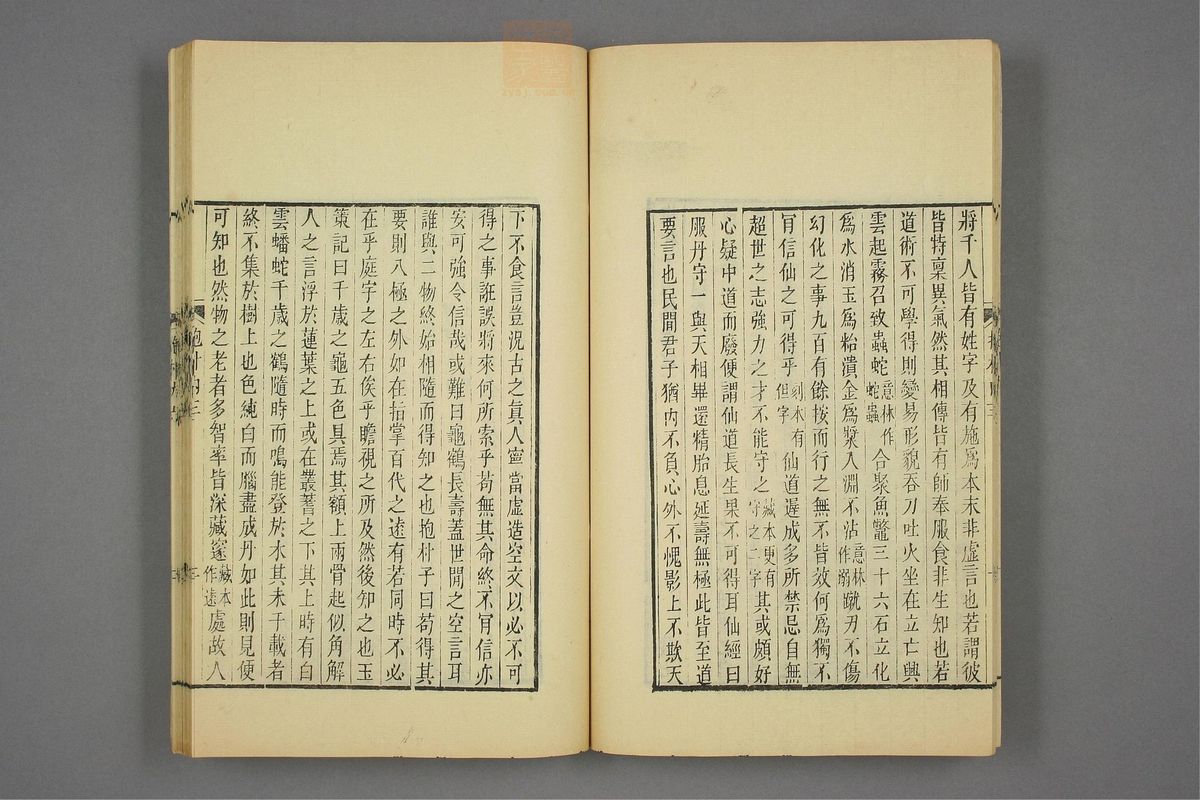 將千人皆有姓字及有施爲本末非虛言也若謂彼
皆特稟異氣然其相傳皆有師奉服食非生知也若
道術不可學得則變易形貌吞刀吐火坐在立亡興
雲起霧召致蟲蛇意林作蛇蟲合聚魚鼈三十六石立化
爲水消玉爲粭潰金爲漿入淵不沾意林作溺蹴刃不傷
幻化之事九百有餘按而行之無不皆效何爲獨不
肎信仙之可得乎刻本有但字仙道遲成多所禁忌自無
超世之志強力之才不能守之藏本更有守之二字其或頗好
心疑中道而廢便謂仙道長生果不可得耳仙經曰
服丹守一與天相畢還精胎息延壽無極此皆至道
要言也民閒君子猶内不負心外不愧影上不欺天
下不食言豈況古之真人寧當虛造空文以必不可
得之事誑誤將來何所索乎苟無其命終不肎信亦
安可強令信哉或難曰龜鶴長壽蓋世閒之空言耳
誰與二物終始相隨而得知之也抱朴子曰苟得其
要則八極之外如在指掌百代之遠有若同時不必
在乎庭宇之左右俟乎瞻視之所及然後知之也玉
策記曰千歲之龜五色具焉其額上兩骨起似角解
人之言浮於蓮葉之上或在叢蓍之下其上時有白
雲蟠蛇千歲之鶴隨時而鳴能登於木其未千載者
終不集於樹上也色純白而腦盡成丹如此則見便
可知也然物之老者多智率皆深藏邃藏本作遠處故人
抱朴内三
三